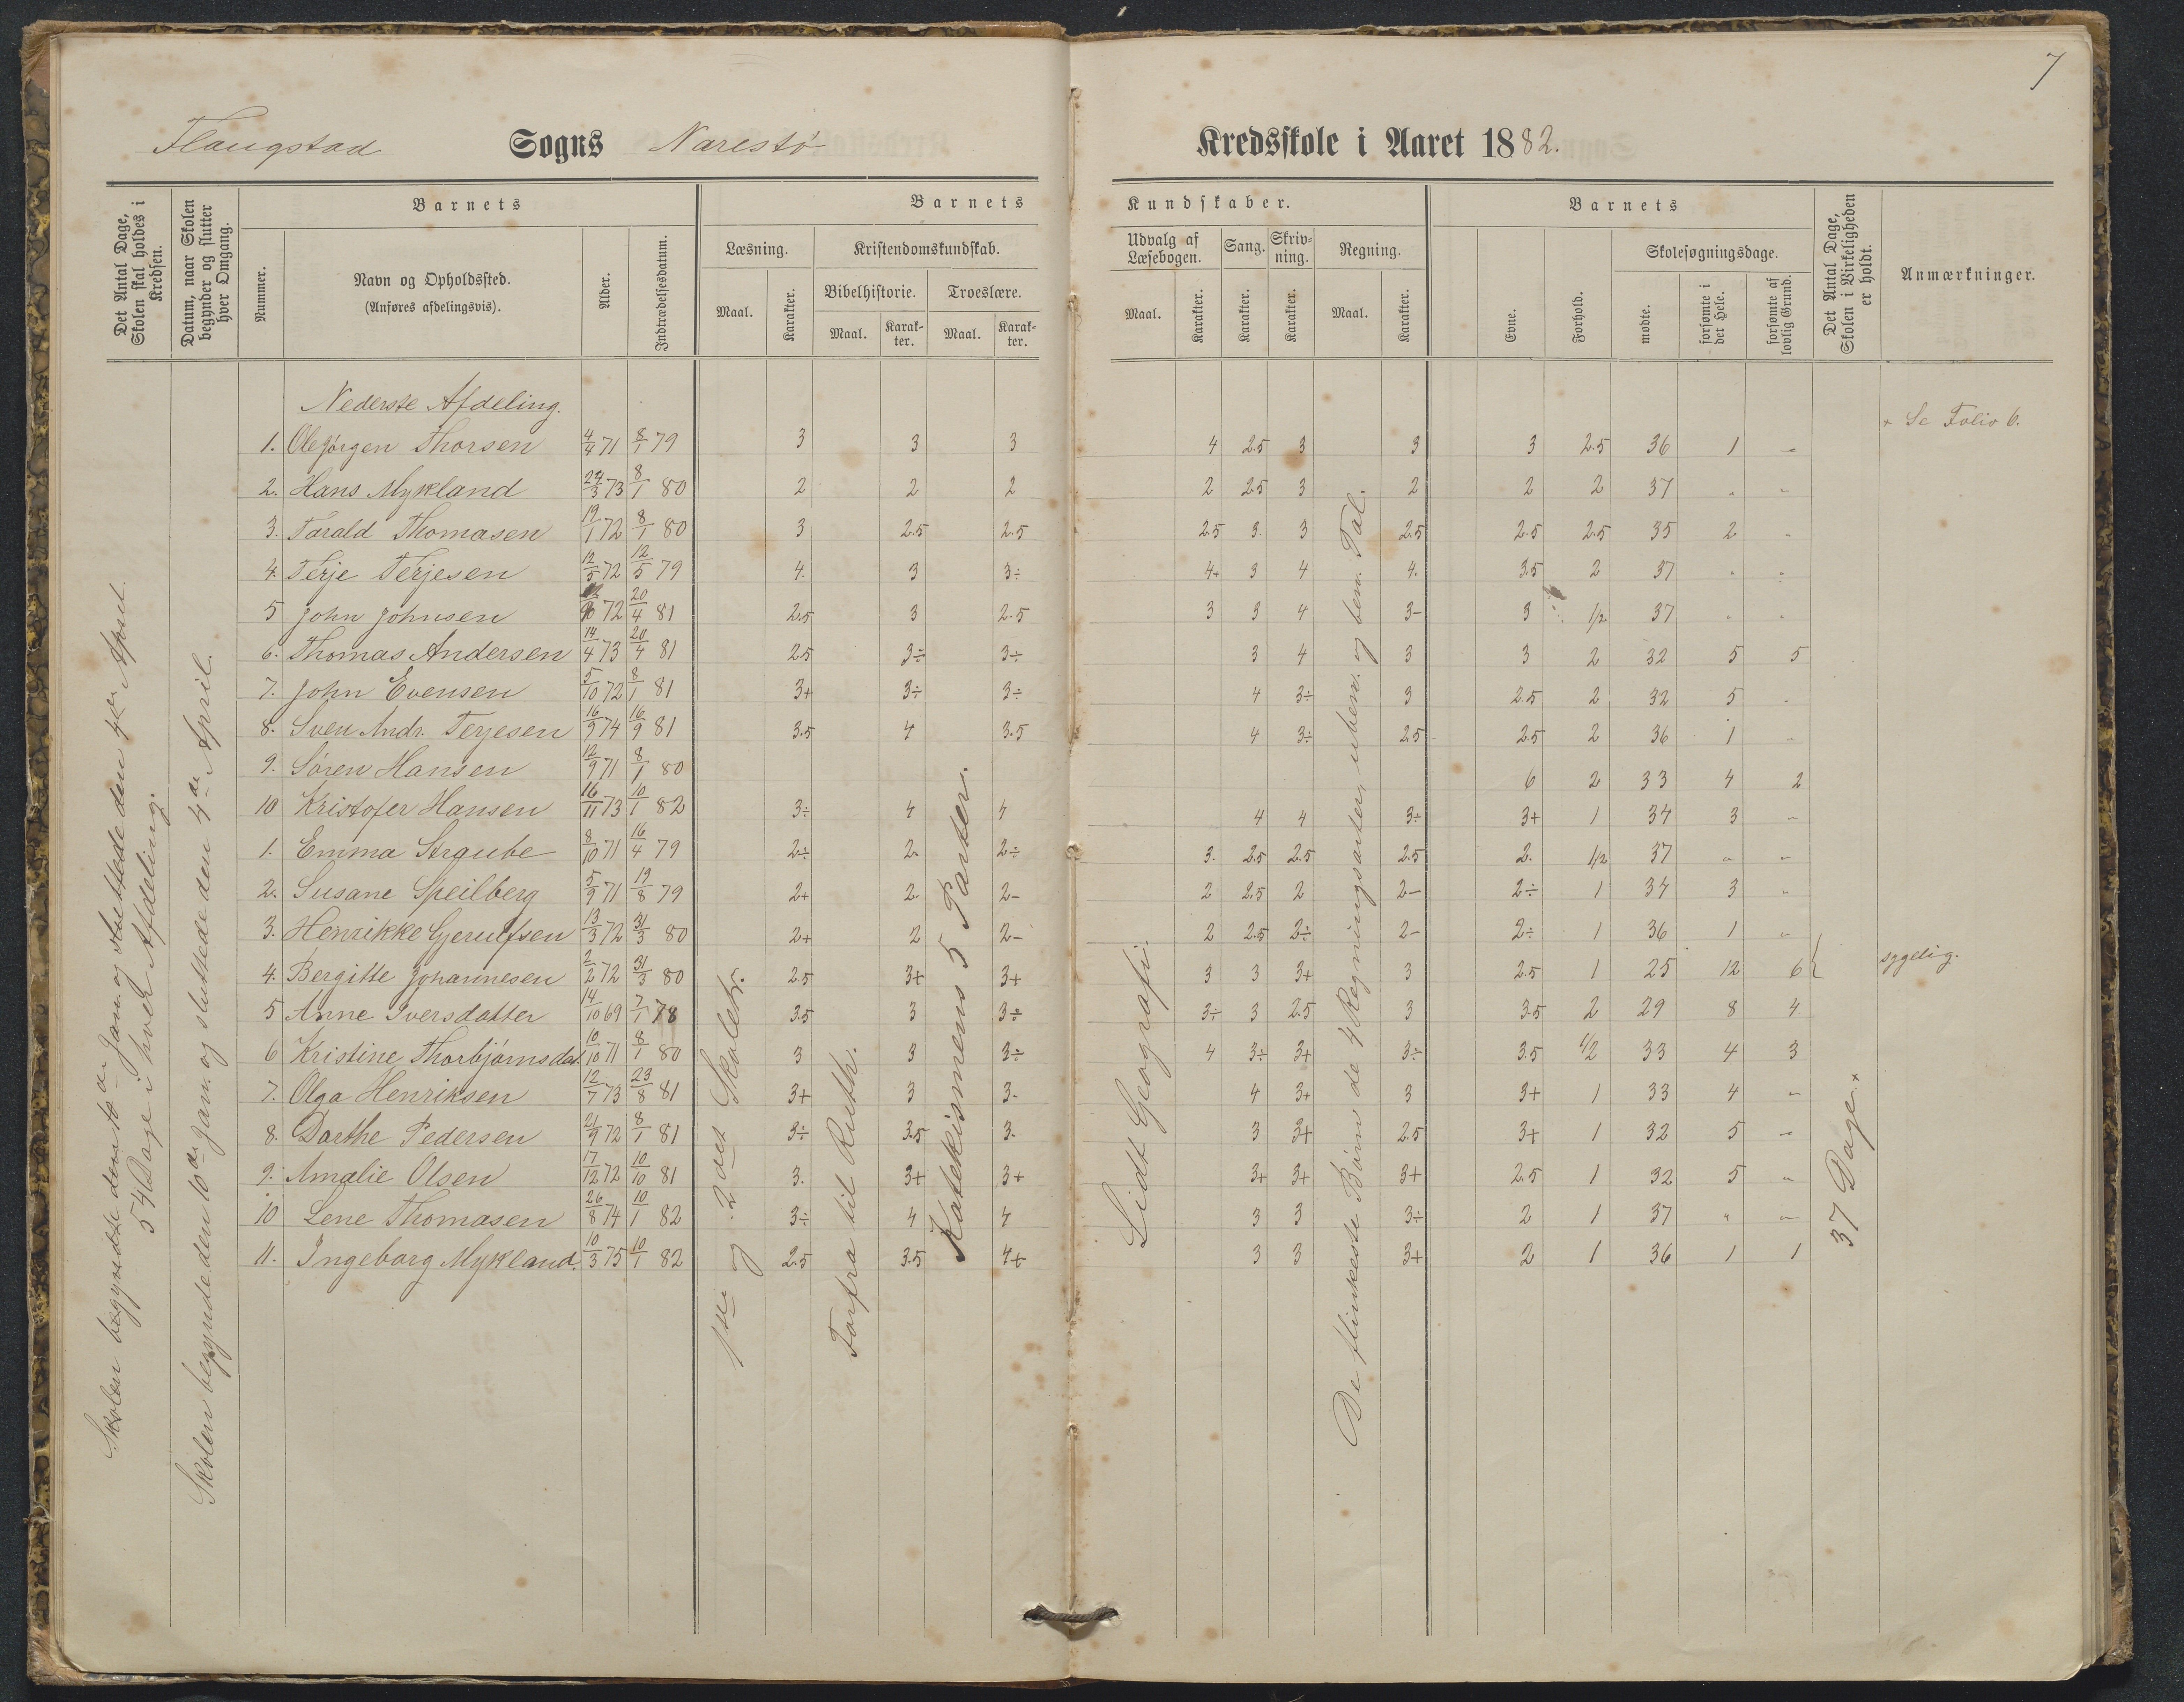 7
Flaugstad Sogns Narestö Kredsskole i Aaret 1882.
Det Antal Dage, Skolen skal holdes i Kredsen.
Datum, naar Skolen begynder og slutter hver Omgang.
Barnets
Nummer.
Navn og Opholdssted.
(Anføres afdelingsvis).
Alder.
Indtrædelsesdatum.
Barnets Kundskaber.
Læsning.
Maal. Karakter.
Kristendomskundskab.
Bibelhistorie. Troeslære.
Maal. Karakter. Maal. Karakter.
Udvalg af Læsebogen.
Maal. Karakter.
Sang.
Karakter.
Skrivning.
Karakter.
Regning.
Maal. Karakter.
Barnets
Evne.
Forhold.
Skolesøgningsdage.
mødte.
forsømte i det Hele.
forsømte af lovlig Grund.
Det Antal Dage, Skolen i Virkeligheden er holdt.
Anmærkninger.
Nederste Afdeling.
+ Se Folio 6.
1. Ole Jørgen Thorsen 4/4 71 8/1 79 3 3 3 4 2.5 3 3 3 2.5 36 1 "
2. Hans Mykland 24/3 73 8/1 80 2 2 2 2 2.5 3 2 2 2 37 " "
3. Tarald Thomasen 19/1 72 8/1 80 3 2.5 2.5 2.5 3 3 2.5 2.5 2.5 35 2 "
4. Terje Terjesen 12/5 72 12/5 79 4. 3 3÷ 4+ 3 4 4. 3.5 2 37 " "
5 John Johnsen 72 20/4 81 2.5 3 2.5 3 3 4 3- 3 1/2 37 " "
6. Thomas Andersen 14/4 73 20/4 81 2.5 3÷ 3÷ 3 4 3 3 2 32 5 5
7. John Evensen 5/10 72 8/1 81 3+ 3÷ 3÷ 4 3÷ 3 2.5 2 32 5 "
8. Sven Andr. Terjesen 16/9 74 16/9 81 3.5 4 3.5 4 3÷ 2.5 2.5 2 36 1 "
9. Sören Hansen 12/9 71 8/1 80 6 2 33 4 2
10 Kristofer Hansen 16/11 73 10/1 82 3÷ 4 4 4 4 3÷ 3+ 1 34 3 "
1. Emma Straube 8/10 71 16/4 79 2÷ 2. 2÷ 3. 2.5 2.5 2.5 2. 1/2 37 " "
2. Susane Speilberg 5/9 71 19/8 79 2+ 2 2- 2 2.5 2 2- 2÷ 1 34 3 "
3. Henrikke Gjerulfsen 13/3 72 31/3 80 2+ 2 2- 2 2.5 2÷ 2- 2÷ 1 36 1 "
4. Bergitte Johannesen 2/2 72 31/3 80 2.5 3+ 3+ 3 3 3+ 3 2.5 1 25 12 6 sygelig.
5 Anne Iversdatter 14/10 69 7/1 78 3.5 3 3÷ 3÷ 3 2.5 3 3.5 2 29 8 4
6 Kristine Thorbjörnsdat. 10/10 71 8/1 80 3 3 3÷ 4 3÷ 3+ 3÷ 3.5 1/2 33 4 3
7. Olga Henriksen 12/7 73 23/8 81 3+ 3 3- 4 3+ 3 3+ 1 33 4 "
8. Dorthe Pedersen 21/9 72 8/1 81 3÷ 3.5 3- 3 3+ 2.5 3+ 1 32 5 "
9. Amalie Olsen 17/12 72 10/10 81 3. 3+ 3+ 3+ 3+ 3+ 2.5 1 32 5 "
10 Lene Thomasen 26/8 74 10/1 82 3÷ 4 4 3 3 3÷ 2 1 37 " "
11. Ingeborg Mykland. 10/3 75 10/1 82 2.5 3.5 4+ 3 3 3+ 2 1 36 1 1
Skolen begyndte den 10de Jan. og sluttede den 4de April.
54 Dage i hver Afdeling.
Skolen begyndte den 10de Jan. og sluttede den 4de April.
1ste og 2det Skoletr.
Forfra til Ruth.
Katekismens 5 Parter.
Lidt Geografi.
De flinkeste Börn de 4 Regningsarter, uben. og ben. Tal.
37 Dage. +